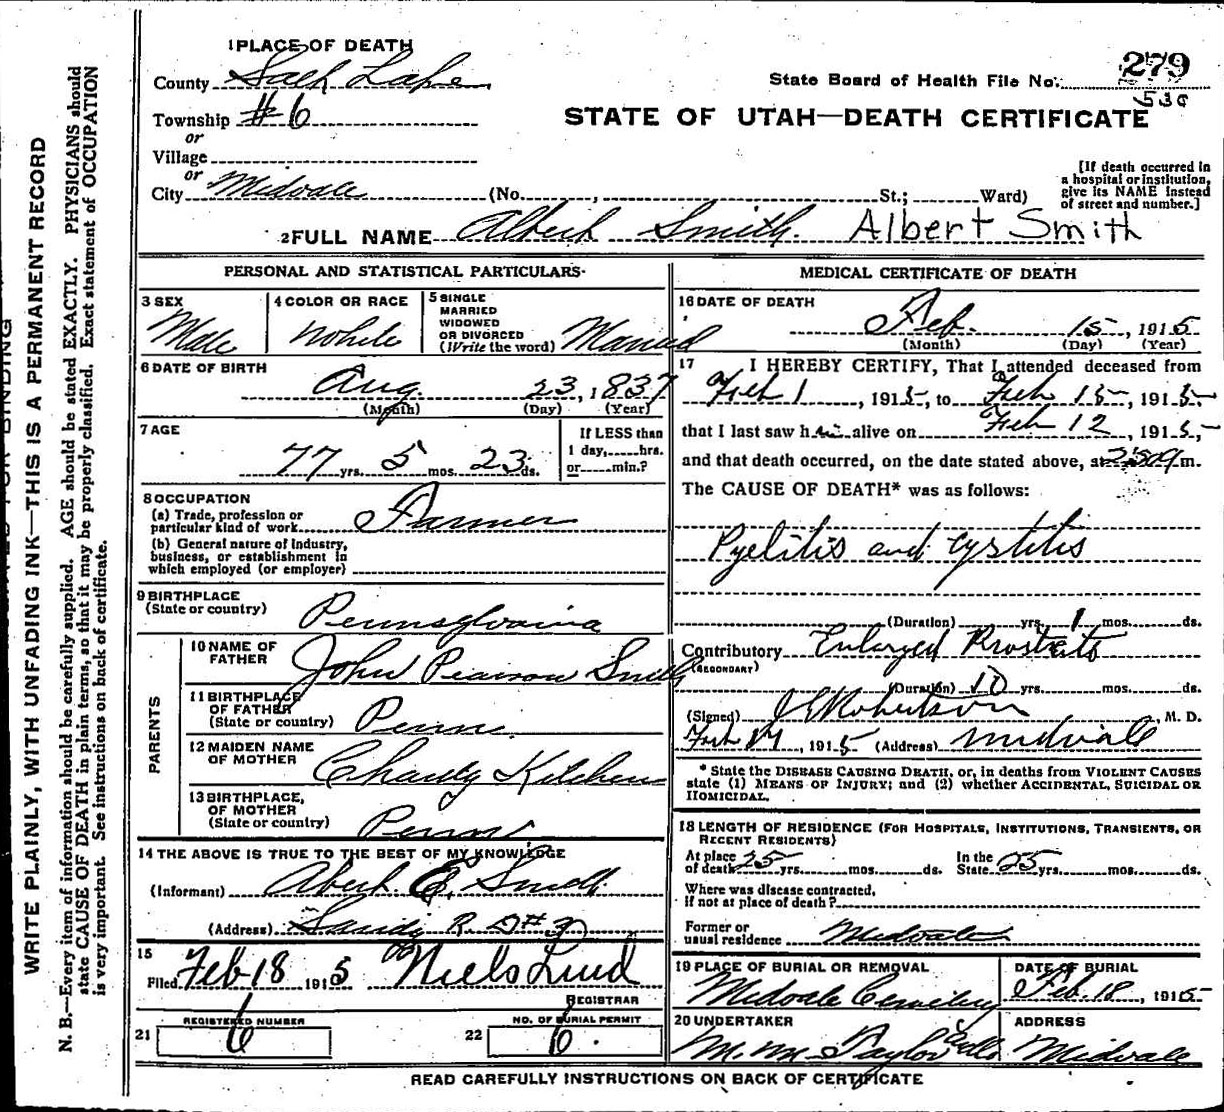 1 PLACE OF DEATH
County Salt Lake
State Board of Health File No. 279
530
Township #6
STATE OF UTAH—DEATH CERTIFICATE
or
Village
or
City Midvale (No. , St.; Ward)
[If death occurred in a hospital or institution, give its NAME instead of street and number.]
2 FULL NAME Albert Smith. Albert Smith
PERSONAL AND STATISTICAL PARTICULARS
3 SEX Male
4 COLOR OR RACE White
5 SINGLE MARRIED WIDOWED OR DIVORCED (Write the word) Married
6 DATE OF BIRTH Aug. 23, 1837
(Month) (Day) (Year)
7 AGE 77 yrs. 5 mos. 23 ds.
If LESS than 1 day,.....hrs. or.....min.?
8 OCCUPATION
(a) Trade, profession or particular kind of work Farmer
(b) General nature of industry, business, or establishment in which employed (or employer)
9 BIRTHPLACE (State or country) Pennsylvania
PARENTS
10 NAME OF FATHER John Pearson Smith
11 BIRTHPLACE OF FATHER (State or country) Penn.
12 MAIDEN NAME OF MOTHER Kitchens
13 BIRTHPLACE, OF MOTHER (State or country) Penn
14 THE ABOVE IS TRUE TO THE BEST OF MY KNOWLEDGE
(Informant) Albert E. Smith
(Address) Sandy R. D #
15
Filed Feb 18 1915 Niels Lind
REGISTRAR
21 REGISTERED NUMBER 6
22 NO. OF BURIAL PERMIT 6.
MEDICAL CERTIFICATE OF DEATH
16 DATE OF DEATH
Feb. 15, 1915
(Month) (Day) (Year)
17 I HEREBY CERTIFY, That I attended deceased from
Feb 1, 1915, to Feb 15, 1915,
that I last saw him alive on Feb 12, 1915,
and that death occurred, on the date stated above, at m.
The CAUSE OF DEATH* was as follows:
Pyelitis and cystitis
(Duration) yrs. 1 mos. ds.
Contributory Enlarged Prostrate
(SECONDARY)
(Duration) 10 yrs. mos. ds.
(Signed) J E Robertson, M. D.
Feb 17, 1915 (Address) Midvale
* State the DISEASE CAUSING DEATH, or, in deaths from VIOLENT CAUSES
state (1) MEANS OF INJURY; and (2) whether ACCIDENTAL, SUICIDAL OR
HOMICIDAL.
18 LENGTH OF RESIDENCE (FOR HOSPITALS, INSTITUTIONS, TRANSIENTS, OR
RECENT RESIDENTS)
At place of death 25 yrs. mos. ds. In the State 25 yrs. mos. ds.
Where was disease contracted,
if not at place of death?
Former or
usual residence Midvale
19 PLACE OF BURIAL OR REMOVAL Midvale Cemetery
DATE OF BURIAL Feb. 18, 1915
20 UNDERTAKER M. M. Taylor
ADDRESS Midvale
READ CAREFULLY INSTRUCTIONS ON BACK OF CERTIFICATE
WRITE PLAINLY, WITH UNFADING INK—THIS IS A PERMANENT RECORD
N. B.—Every item of information should be carefully supplied. AGE should be stated EXACTLY. PHYSICIANS should
state CAUSE OF DEATH in plain terms, so that it may be properly classified. Exact statement of OCCUPATION
is very important. See instructions on back of certificate.